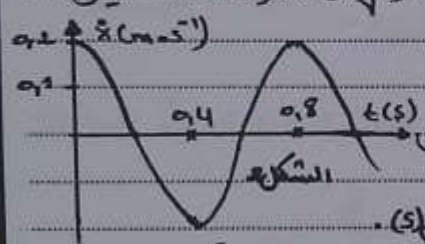 0,2 ẋ(m.s⁻¹)
0,1
0,4 0,8 t(s)
الشكل
(s)